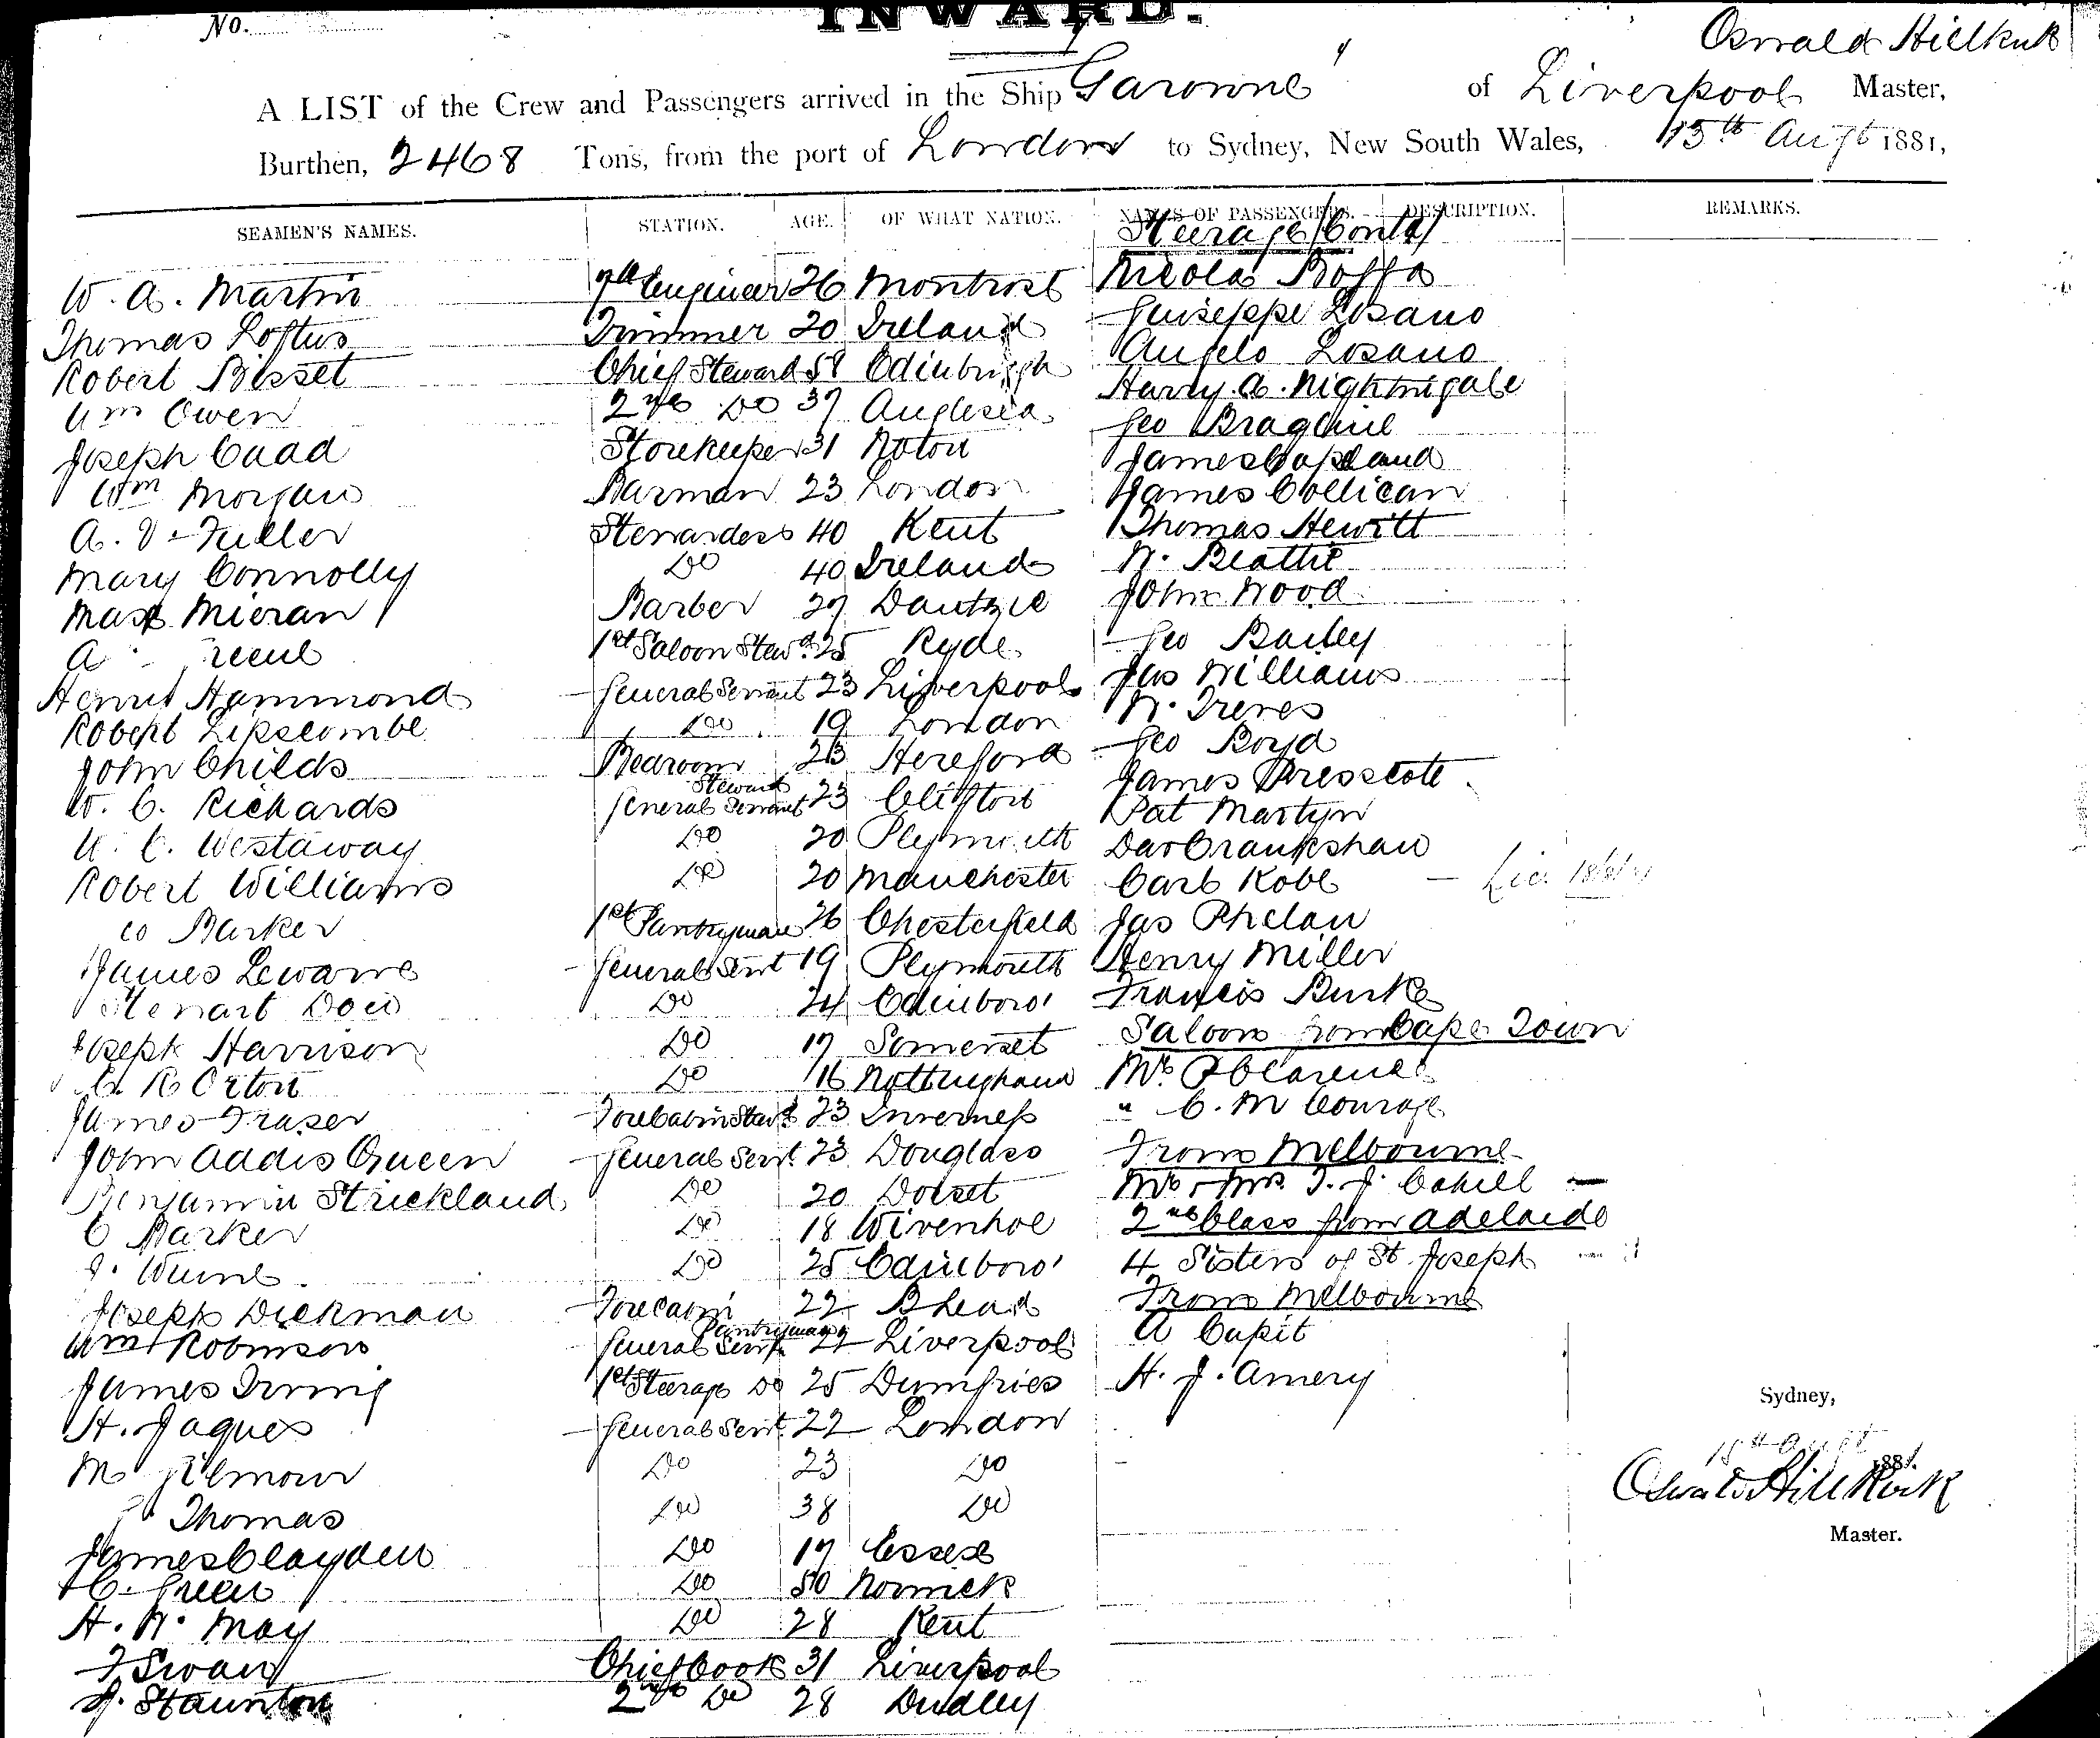 No.
INWARD.
Oswald Hillkirk
A LIST of the Crew and Passengers arrived in the Ship "Garonne" of Liverpool Master,
Burthen, 2468 Tons, from the port of London to Sydney, New South Wales, 15th Augt 1881,
SEAMEN'S NAMES. STATION. AGE. OF WHAT NATION. NAMES OF PASSENGERS. DESCRIPTION. REMARKS.
Steerage/Contd/
W. A. Martin Engineer 26 Montrose Nicola Roffa
Thomas Loftus Trimmer 20 Ireland Guiseppe Losano
Robert Bisset Chief Steward 58 Edinburgh Angelo Losano
Wm Owen 2nd Do 37 Anglesea Harry A. Nightingale
Joseph Caad Storekeeper 31 Geo
Wm Morgan Barman 23 London James Copeland
A. V. Fuller Stewardess 40 Kent James Collican
Mary Connolly Do 40 Ireland Thomas Hewitt
Max Mieran Barber 27 Dantzic W. Beattie
A 1st Saloon Stewd 25 Ryde John Wood
Hammond General Servant 23 Liverpool Geo Bailey
Robert Lipscombe Do 19 London Jas Williams
John Childs Bedroom Steward 23 Hereford W. Treves
W. C. Richards General Servant 23 Clifton Geo Boyd
W. C. Westaway Do 20 Plymouth James Presscote
Robert Williams Do 20 Manchester Pat Martyn
Barker 1st Pantryman 26 Chesterfield Dav Crankshaw
James Lewarne General Servt 19 Plymouth Carl Kobe
Stewart Doig Do 24 Edinboro' Jas Phelan
Joseph Harrison Do 17 Somerset Henry Miller
C. R Orton Do 16 Nottingham Francis Burke
James Fraser Forecabin Stewd 23 Inverness Saloon from Cape Town
John Addis Queen General Servt. 23 Douglass Mr
Benjamin Strickland Do 20 Dorset " C. M Courage
C Barker Do 18 Wivenhoe From Melbourne
Do 25 Edinboro' Mr & Mrs T. J. Cahill
Joseph Dickman Forecabin Pantryman 22 B head 2nd Class from Adelaide
Wm Robinson General Servt 22 Liverpool 4 Sisters of St Joseph
James Irving 1st Steerage Do 25 Dumfries From Melbourne
H. Jaques General Servt. 22 London A Cupit
M Gilmour Do 23 Do H. J. Amery
Thomas Do 38 Do
James Clayden Do 17 Essex
C. Green Do 50 Norwich
H. W. May Do 28 Kent
F Swan Chief Cook 31 Liverpool
J. Staunton 2nd Do 28 Dudley
Sydney,
15th Augt 1881.
Oswald Hillkirk
Master.